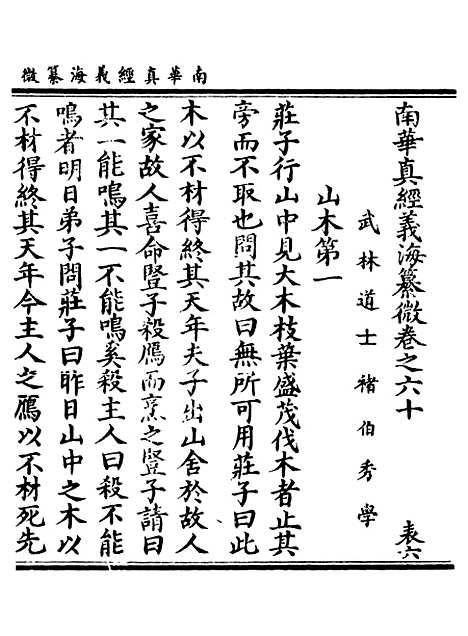 南華真經義海纂微
南華真經義海纂微卷之六十 表六
武林道士褚伯秀學
山木第一
莊子行山中見大木枝葉盛茂伐木者止其
旁而不取也問其故曰無所可用莊子曰此
木以不材得終其天年夫子出山舍於故人
之家故人喜命豎子殺鴈而烹之豎子請曰
其一能鳴其一不能鳴奚殺主人曰殺不能
鳴者明日弟子問莊子曰昨日山中之木以
不材得終其天年今主人之鴈以不材死先